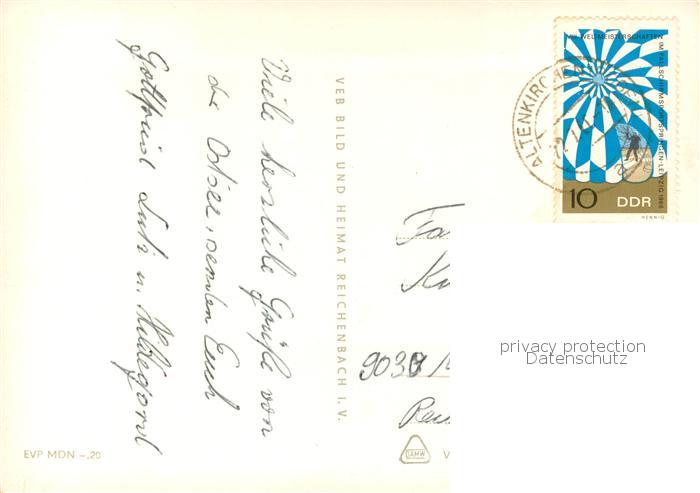 Viele herzliche Grüße von
der Ostsee, senden Euch
Gottfried Lutz u. Hildegard
VEB BILD UND HEIMAT REICHENBACH I. V.
EVP MDN –.20
VIII. WELTMEISTERSCHAFTEN
IM FALLSCHIRMSPORTSPRINGEN · LEIPZIG 1966
10 DDR
HENNIG
ALTENKIRCHEN
Fa
903
privacy protection
Datenschutz
V